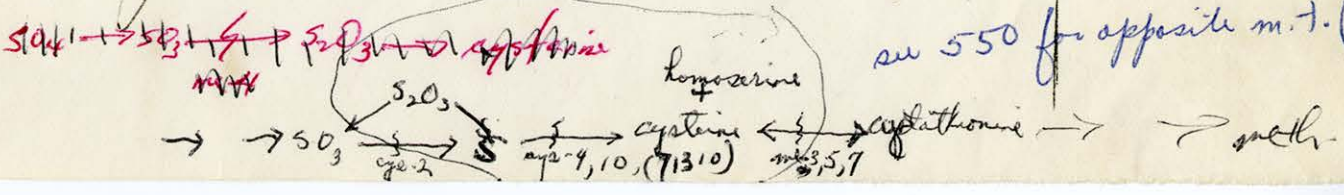 SO4 → SO3 → S2O3 → cysteine
see 550 for opposite m.t.
homoserine
+
S2O3
→ → SO3 → S → cysteine ↔ cystathionine → → meth.
cys-2 cys-4, 10, (71310) me-3, 5, 7